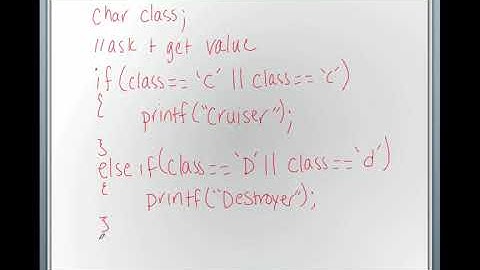 char class;
//ask + get value
if(class== 'C' || class== 'c')
{
printf("Cruiser");
}
else if(class== 'D' || class== 'd')
{
printf("Destroyer");
}
"